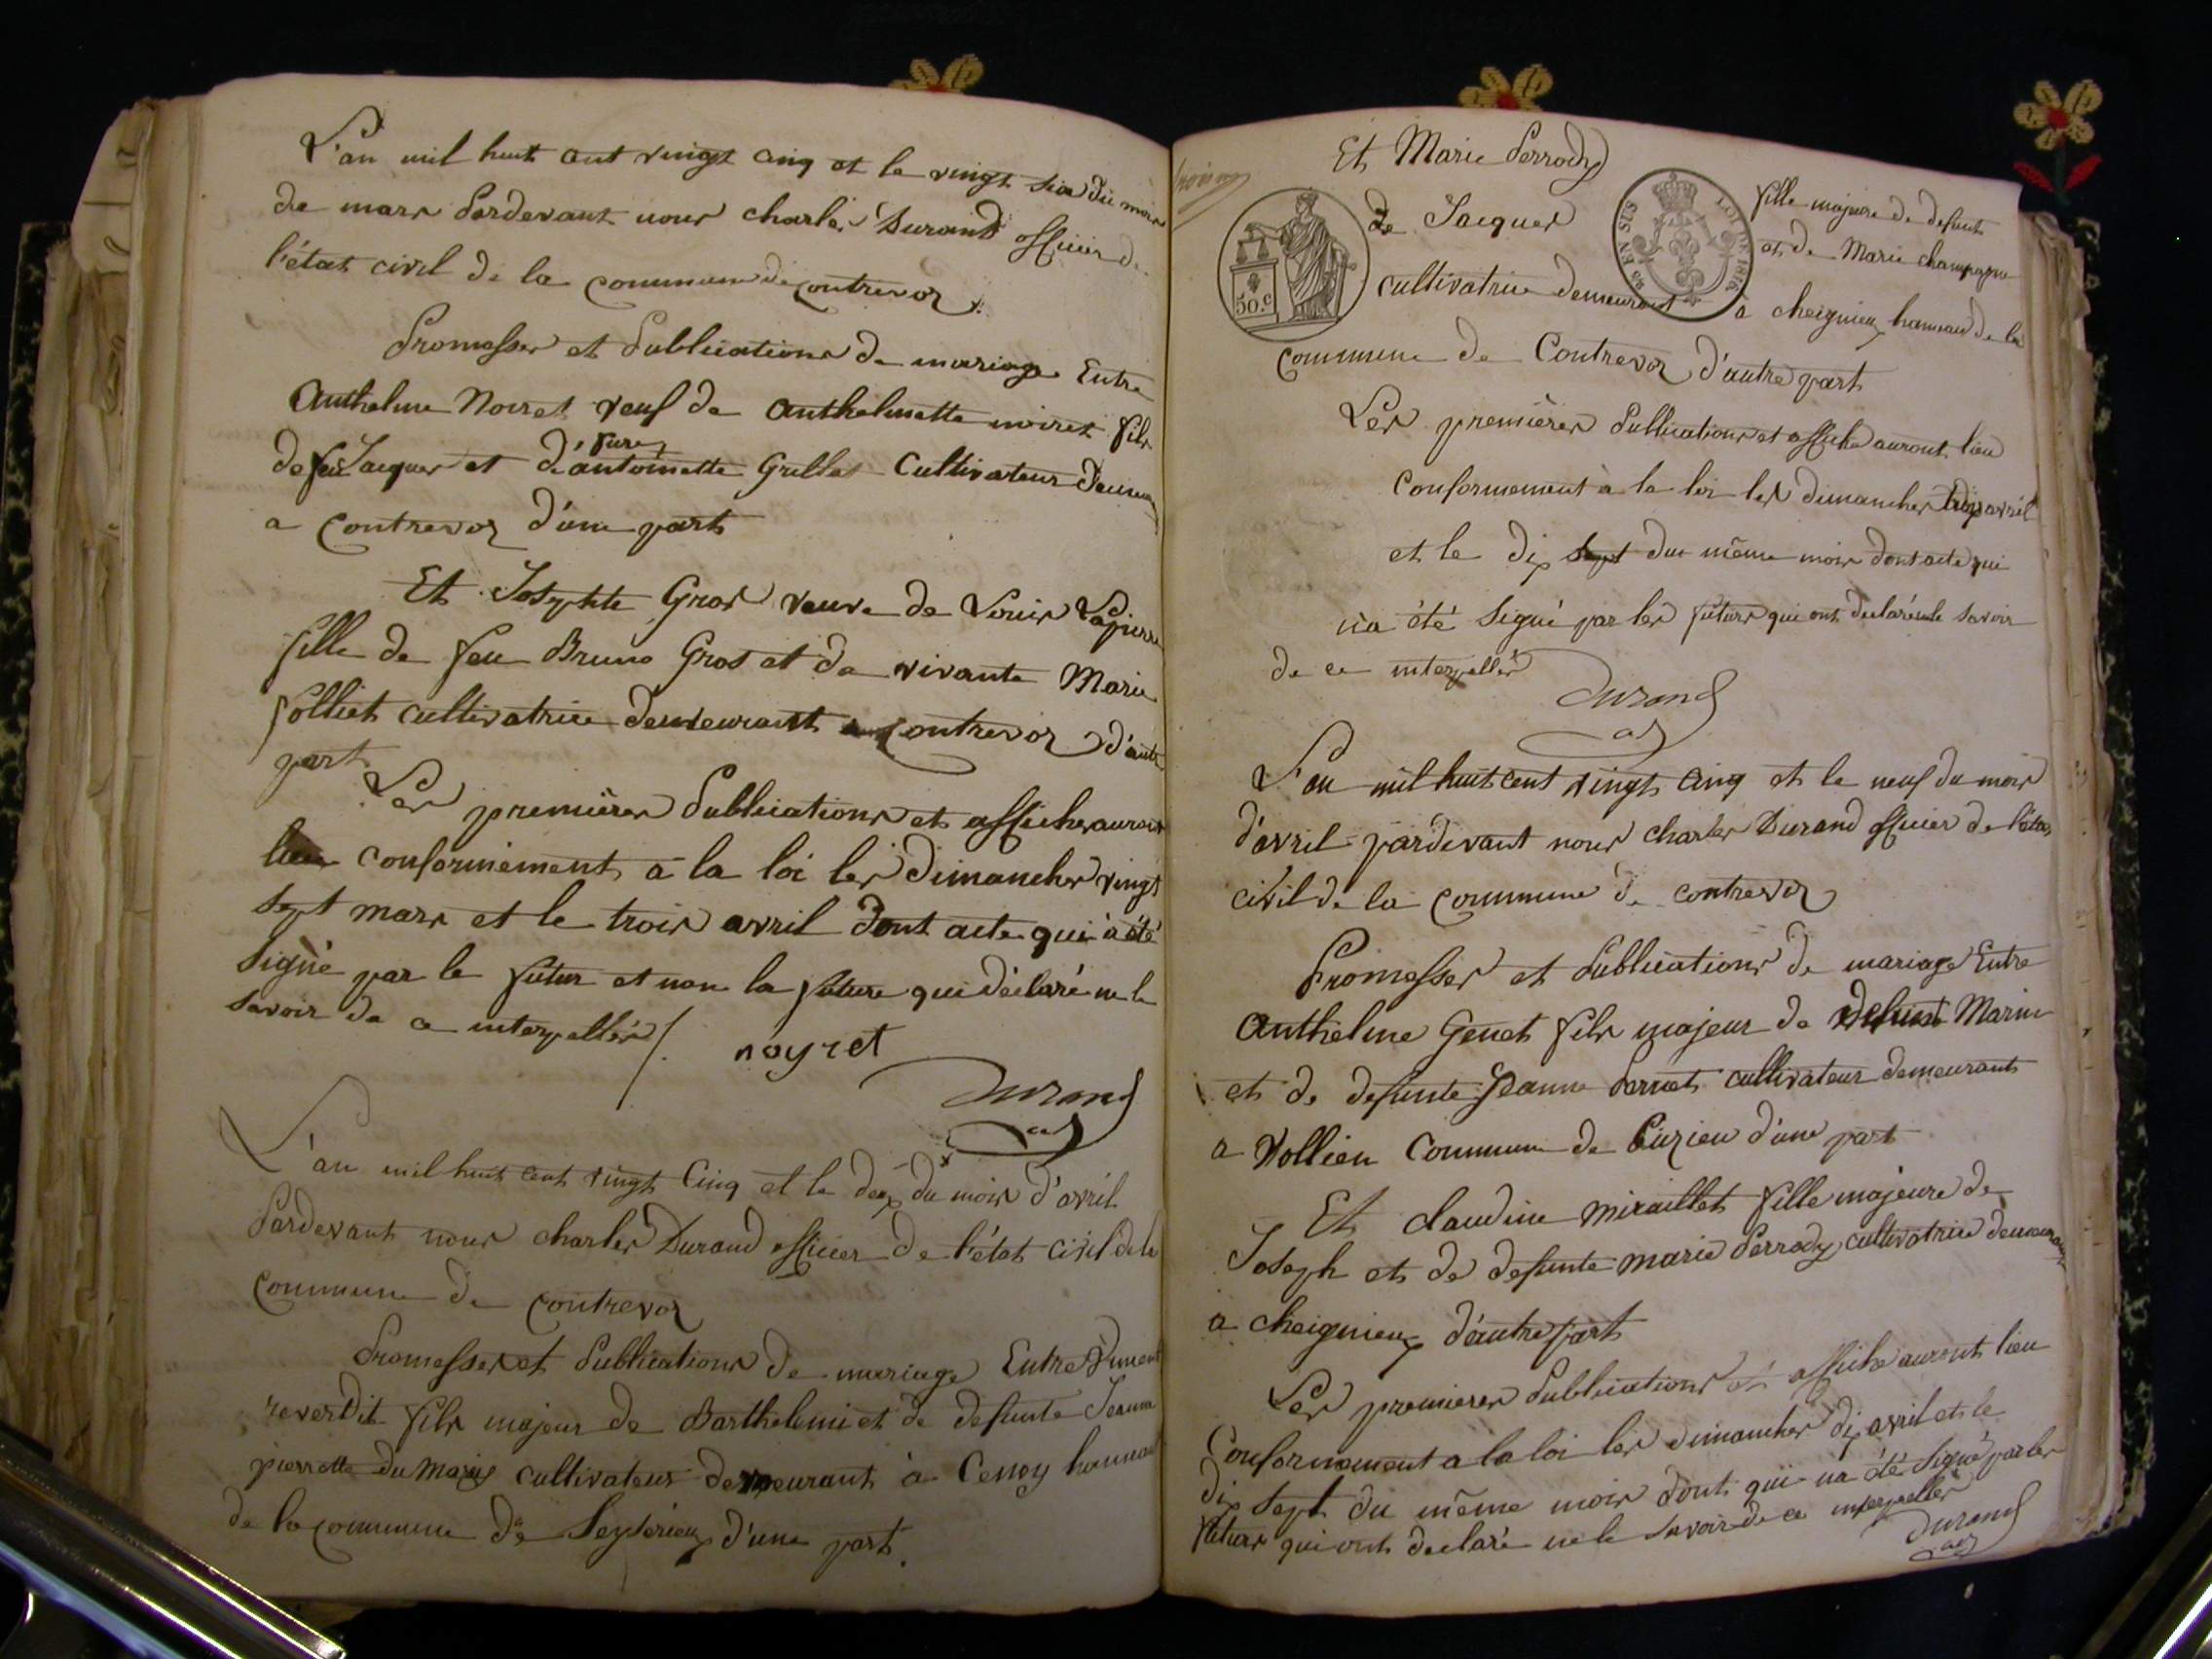 L'an mil huit cent vingt cinq et le vingt six du mois
de mars Pardevant nous charles Durand officier de
l'état civil de la commune de contrevoz
Promesses et Publications de mariage Entre
Anthelme Noiret veuf de Anthelmette noiret fils
de feu Jacques et d'antoinette Grillet Cultivateur
a Contrevoz d'une part
Et Josephte Gros veuve de Louis Lapierre
fille de feu Bruno Gros et de vivante Marie
folliet cultivatrice demeurant a Contrevoz d'autre
part
Les premières Publications et affiches auront
lieu conformément a la loi les Dimanches vingt
sept mars et le trois avril dont acte qui a été
signé par le futur et non la future qui déclaré ne le
savoir de ce interpellés /. noyret
Durand
adj
L'an mil huit cent vingt Cinq et le deux du mois d'avril
Pardevant nous charles Durand officier de l'état civil de la
commune de Contrevoz
Promesses et Publications de mariage Entre Vincent
reverdit fils majeur de Barthelemi et de defunte Jeanne
pierrette cultivateur demeurant à Cenoy hameau
de la commune de Seyserieux d'une part.
Et Marie Perrody
fille majeure de defunt
de Jacques et de Marie champagne
50.c
EN SUS LOI DE 1816
cultivatrice demeurant à cheignieux hameau de la
commune de Contrevoz d'autre part
Les premières Publications et affiche auront lieu
Conformement à la loi les dimanches trois avril
et le dix sept du même mois dont acte qui
n'a été signé par les futurs qui ont déclaré ne le savoir
de ce interpellés
Durand
adj
L'an mil huit cent vingt cinq et le neuf du mois
d'avril pardevant nous charles Durand officier de l'état
civil de la commune de contrevoz
Promesses et Publications de mariage Entre
Anthelme Genet fils majeur de defunt Marin
et de defunte Jeanne Pernet cultivateur demeurant
a Vollien Commune de Cuzieu d'une part
Et claudine miraillet fille majeure de
Joseph et de defunte marie Perrody cultivatrice demeurant
a cheignieux d'autre part
Les premieres Publications et affiche auront lieu
Conformement a la loi les dimanches dix avril et le
dix sept du même mois dont qui na été signé par les
futurs qui ont declaré ne le savoir de ce interpellés
Durand
adj